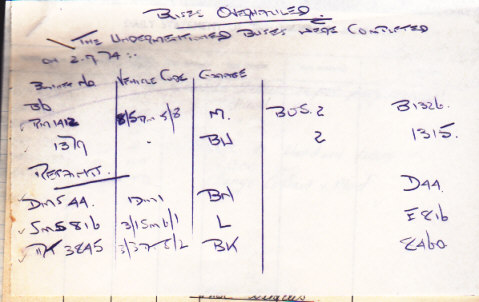 BUSES OVERHAULED.
THE UNDERMENTIONED BUSES WERE COMPLETED
ON 2.9.74 :-
BONNET NO. VEHICLE CODE GARAGE
RM1412 M. BUS. 2 B1326.
1377 " BN 2 1315.
REPAINTS.
DMS 44. 1Dm1 BN D44.
SMS 816 3/1Sm6/1 L E816
RT 3845 BK